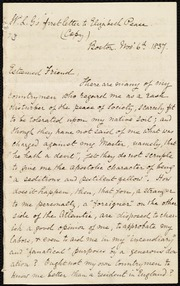 W. L. G's first letter to Elizabeth Pease
(Copy)
Boston Nov 6th 1837.
Esteemed Friend,
There are many of my
countrymen who regard me as a rash
disturber of the peace of society, scarcely fit
to be tolerated upon my native soil; and
though they have not said of me what was
charged against my Master, namely, that
"he hath a devil," yet they do not scruple
to give me the apostolic character of being
"a seditious and pestilent fellow". How
does it happen, then, that you, a stran-
ger to me personally, a "foreigner" on the other
side of the Atlantic, are disposed to cher-
ish a good opinion of me, to approbate my
labors, & even to aid me in my "incendiary"
and "fanatical" purposes by a generous don-
ation? Ought not my own countrymen to
know me better than a resident in England?